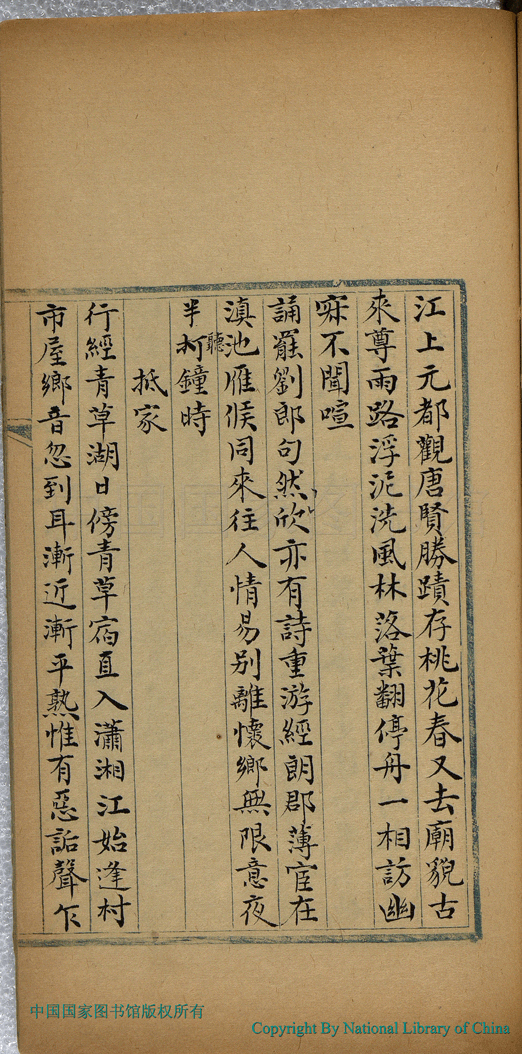 江上元都觀唐賢勝蹟存桃花春又去廟貌古
來尊雨路浮泥洗風林落葉翻停舟一相訪幽
寐不聞喧
誦罷劉郎句然欣亦有詩重游經朗郡薄宦在
滇池雁候同來往人情易別離懷鄉無限意夜
半柯聽鐘時
抵家
行經青草湖日傍青草宿直入瀟湘江始逢村
市屋鄉音忽到耳漸近漸平熟惟有惡詬聲乍
中国国家图书馆版权所有
Copyright By National Library of China